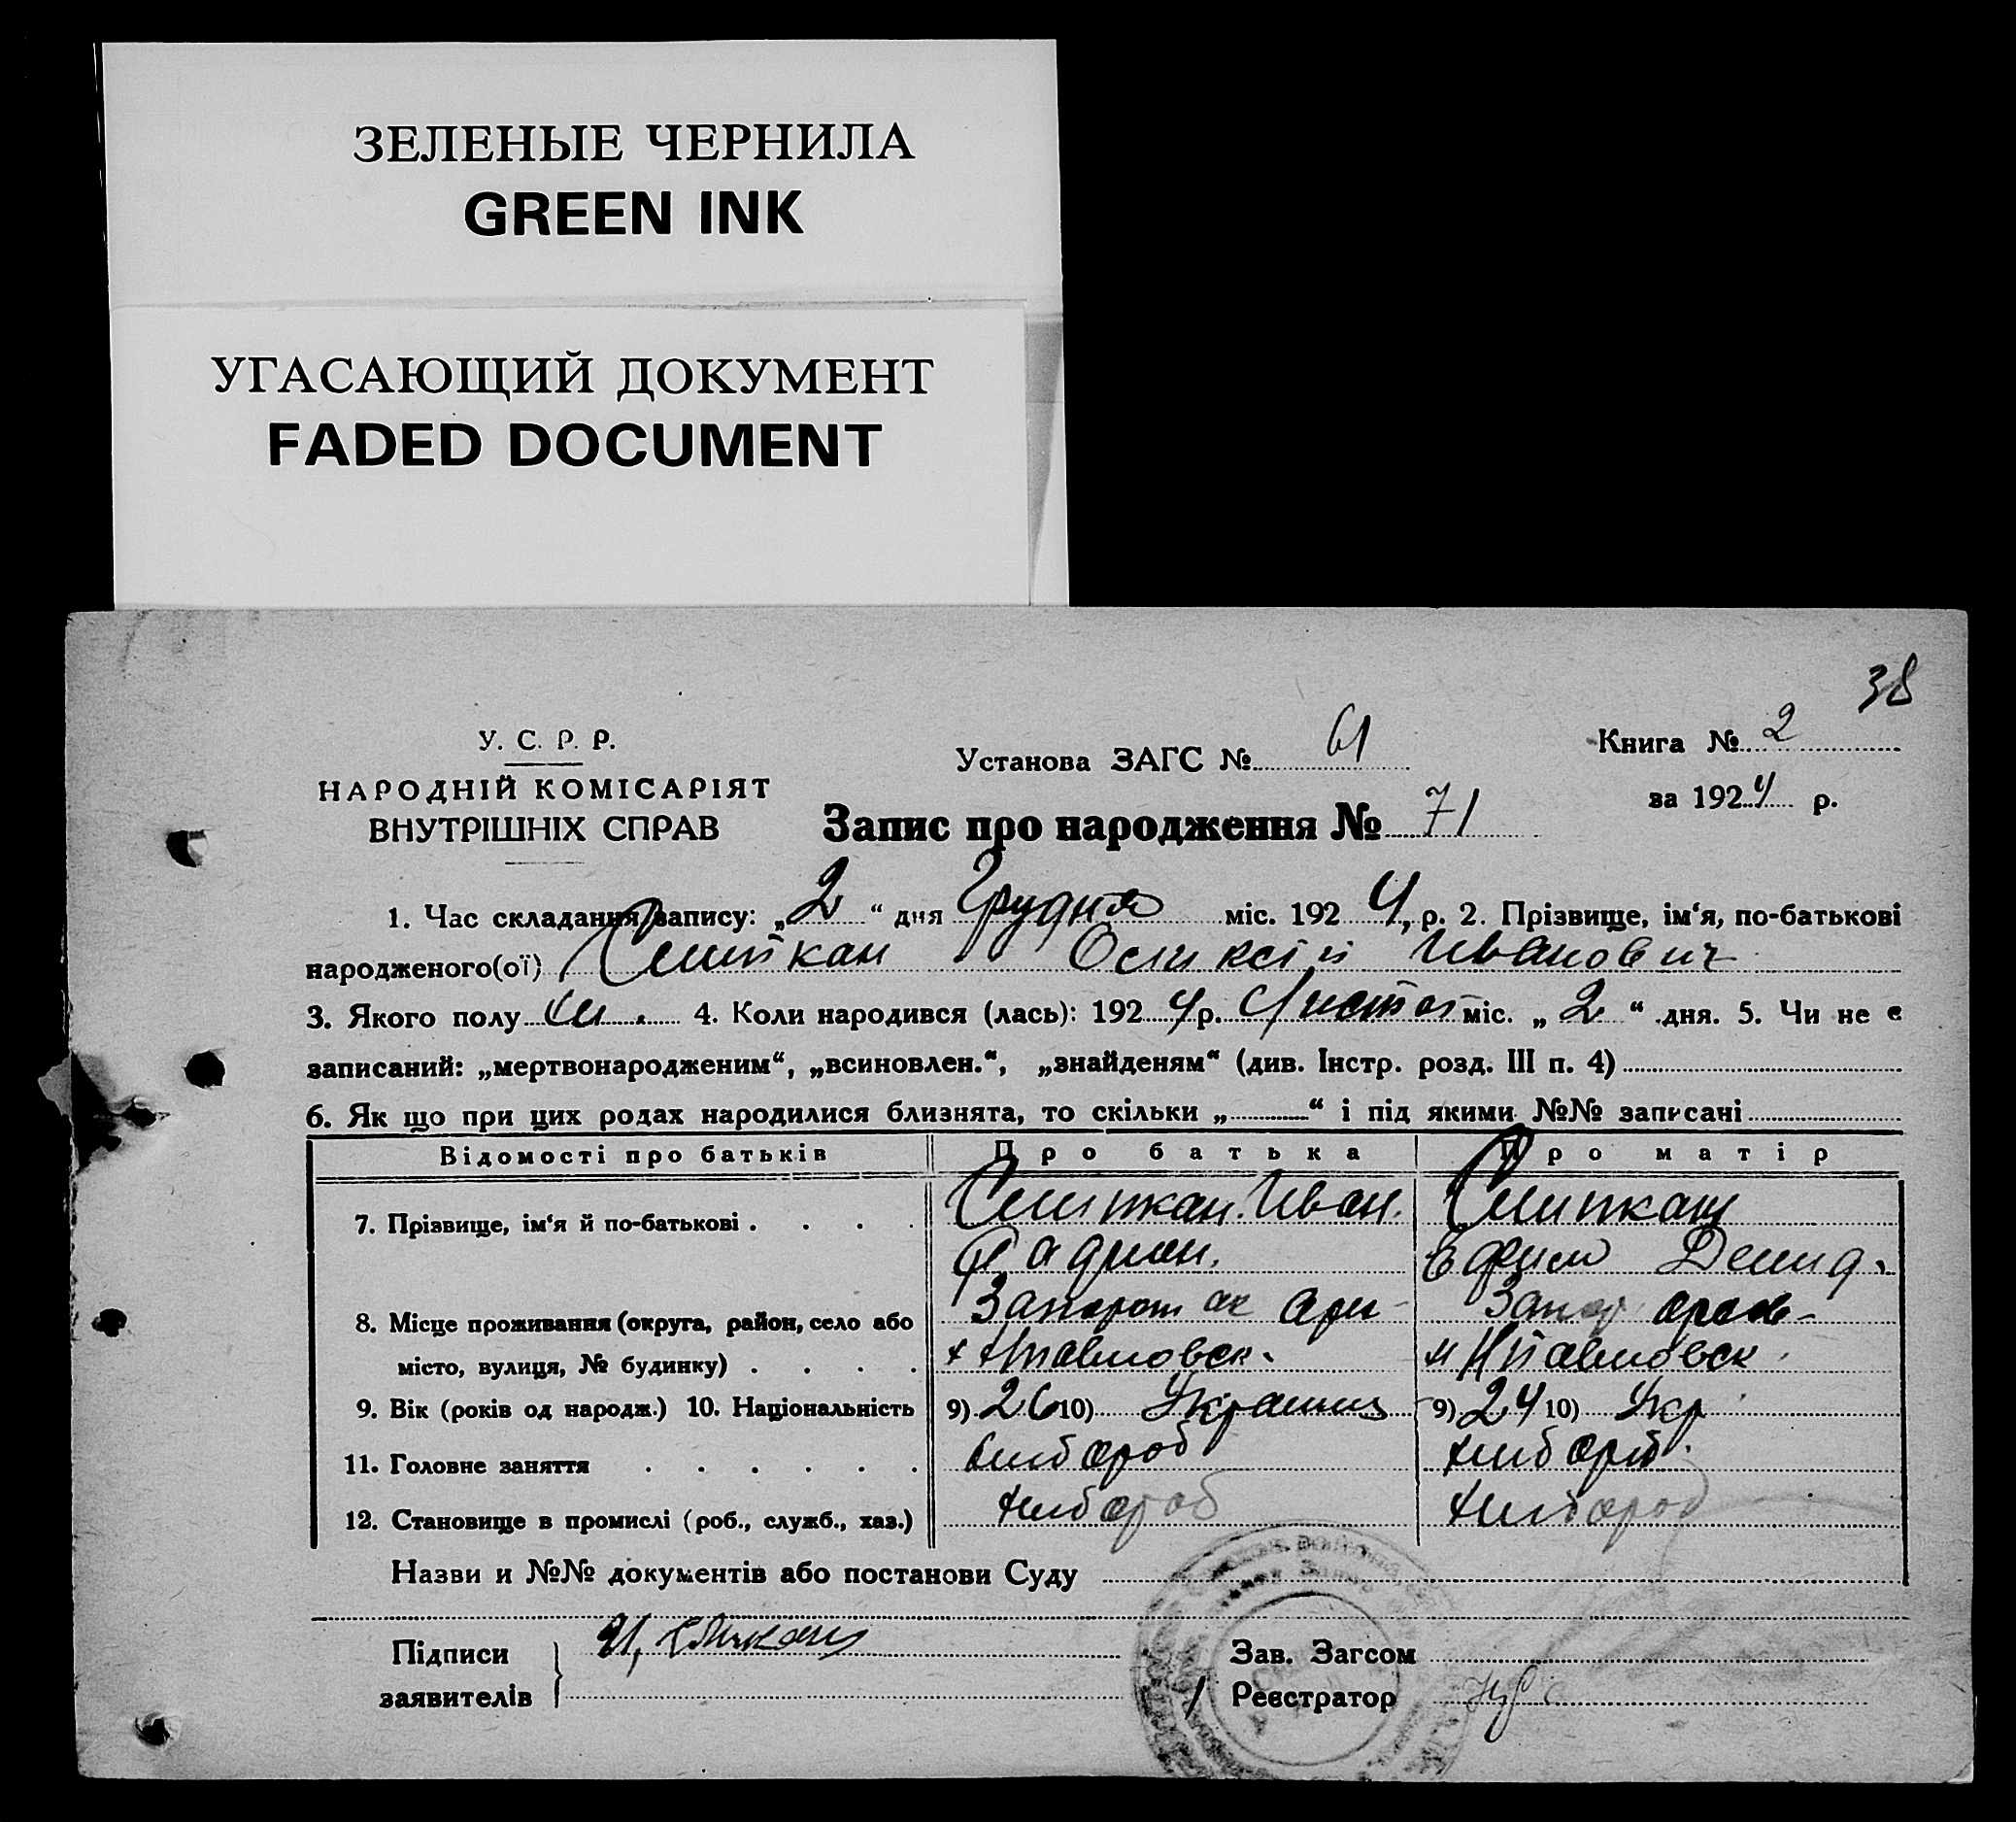 ЗЕЛЕНЫЕ ЧЕРНИЛА
GREEN INK
УГАСАЮЩИЙ ДОКУМЕНТ
FADED DOCUMENT
38
У. С. Р. Р.
НАРОДНІЙ КОМІСАРІЯТ
ВНУТРІШНІХ СПРАВ
Установа ЗАГС № 61
Книга № 2
за 1924 р.
Запис про народження № 71
1. Час складання запису: „2“ дня Грудня міс. 1924, р. 2. Прізвище, ім‘я, по-батькові
народженого(ої) Оликсій Иванович
3. Якого полу 4. Коли народився (лась): 1924 р. Листоп міс. „2“ дня. 5. Чи не є
записаний: „мертвонародженим“, „всиновлен.“, „знайденям“ (див. Інстр. розд. III п. 4)
6. Як що при цих родах народилися близнята, то скільки „ “ і під якими №№ записані
Відомості про батьків Про батька Про матір
7. Прізвище, ім‘я й по-батькові Иван.
Демид.
8. Місце проживання (округа, район, село або Запорож ок
місто, вулиця, № будинку)
9. Вік (років од народж.) 10. Національність 9) 26 10) Украинец 9) 24 10) Укр
11. Головне заняття хлібороб хлібороб
12. Становище в промислі (роб., служб., хаз.) хлібороб хлібороб
Назви и №№ документів або постанови Суду
Підписи
заявителів
Зав. Загсом
Реєстратор